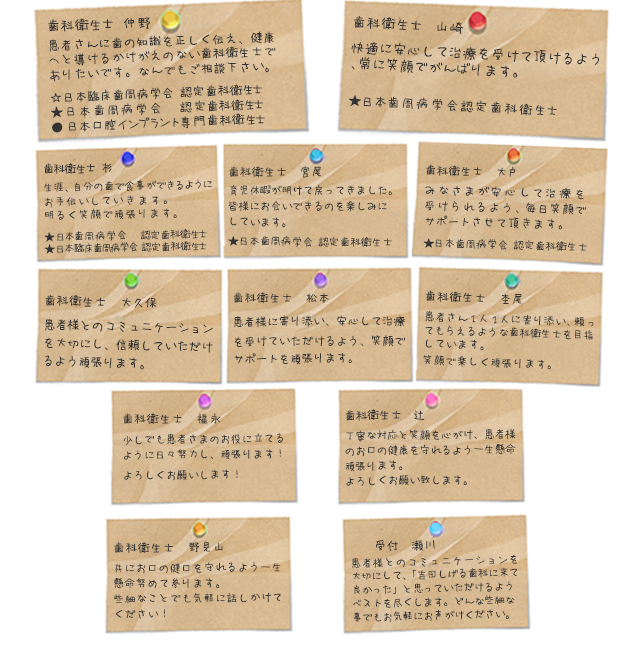 歯科衛生士 仲野
患者さんに歯の知識を正しく伝え、健康
へと導けるかけがえのない歯科衛生士で
ありたいです。なんでもご相談下さい。
☆日本臨床歯周病学会 認定歯科衛生士
★日本歯周病学会 認定歯科衛生士
●日本口腔インプラント専門歯科衛生士
歯科衛生士 山崎
快適に安心して治療を受けて頂けるよう
、常に笑顔でがんばります。
★日本歯周病学会認定歯科衛生士
歯科衛生士 杉
生涯、自分の歯で食事ができるように
お手伝いしていきます。
明るく笑顔で頑張ります。
★日本歯周病学会 認定歯科衛生士
★日本臨床歯周病学会 認定歯科衛生士
歯科衛生士 宮尾
育児休暇が明けて戻ってきました。
皆様にお会いできるのを楽しみに
しています。
★日本歯周病学会 認定歯科衛生士
歯科衛生士 大戸
みなさまが安心して治療を
受けられるよう、毎日笑顔で
サポートさせて頂きます。
★日本歯周病学会 認定歯科衛生士
歯科衛生士 大久保
患者様とのコミュニケーション
を大切にし、信頼していただけ
るよう頑張ります。
歯科衛生士 松本
患者様に寄り添い、安心して治療
を受けていただけるよう、笑顔で
サポートを頑張ります。
歯科衛生士 杢尾
患者さん1人1人に寄り添い、頼っ
てもらえるような歯科衛生士を目指
しています。
笑顔で楽しく頑張ります。
歯科衛生士 福永
少しでも患者さまのお役に立てる
ように日々努力し、頑張ります!
よろしくお願いします!
歯科衛生士 辻
丁寧な対応と笑顔を心がけ、患者様
のお口の健康を守れるよう一生懸命
頑張ります。
よろしくお願い致します。
歯科衛生士 野見山
共にお口の健口を守れるよう一生
懸命努めて参ります。
些細なことでも気軽に話しかけて
ください!
受付 瀬川
患者様とのコミュニケーションを
大切にして、「吉田しげる歯科に来て
良かった」と思っていただけるよう
ベストを尽くします。どんな些細な
事でもお気軽にお声がけください。